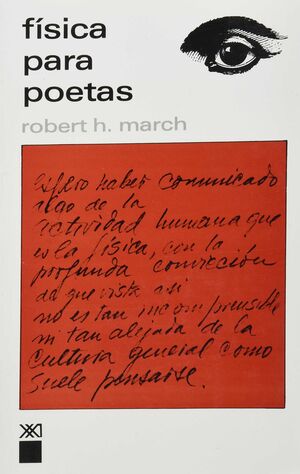 física
para
poetas
robert h. march
espero haber comunicado
algo de la
actividad humana que
es la física, con la
profunda convicción
de que vista asi
no es tan incomprensible
ni tan alejada de la
cultura general como
suele pensarse.